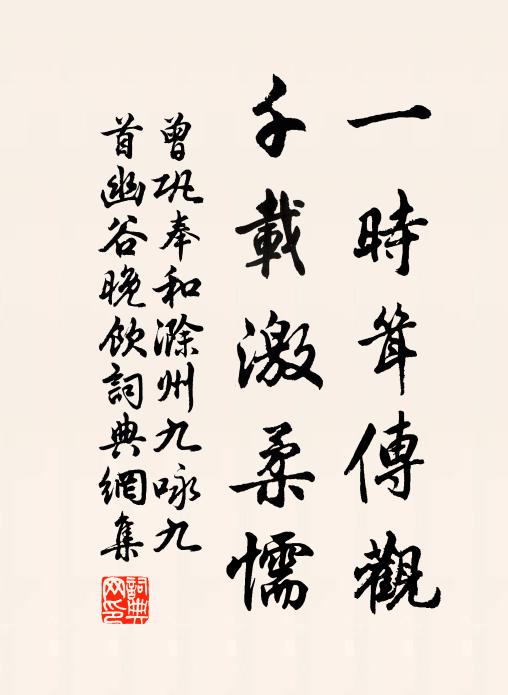 一時耸傳觀
千載激柔懦
曾巩奉和滁州九咏九
首幽谷晚飲詞典網集
詞典
网印